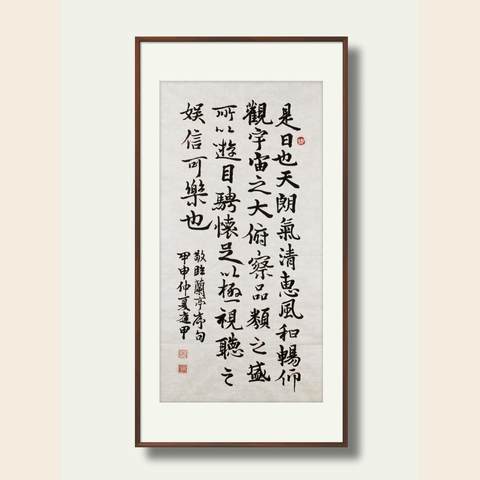 是日也天朗氣清恵風和暢仰
觀宇宙之大俯察品類之盛
所以遊目騁懷足以極視聽之
娛信可樂也
敬臨蘭亭序句
甲申仲夏